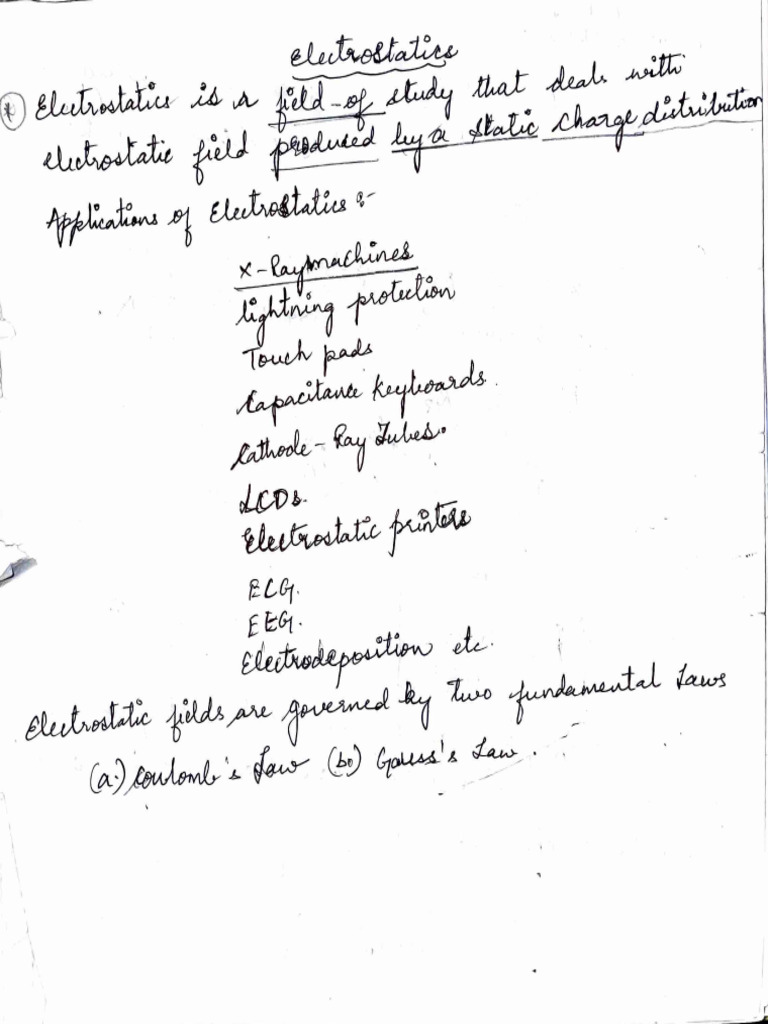 Electrostatics
* Electrostatics is a field-of study that deals with
electrostatic field produced by a static charge distribution
Applications of Electrostatics :-
X-Ray machines
lightning protection
Touch pads
Capacitance keyboards.
Cathode-Ray Tubes.
LCDs.
Electrostatic printers
ECG.
EEG.
Electrodeposition etc.
Electrostatic fields are governed by two fundamental Laws
(a.) Coulomb's Law (b.) Gauss's Law.